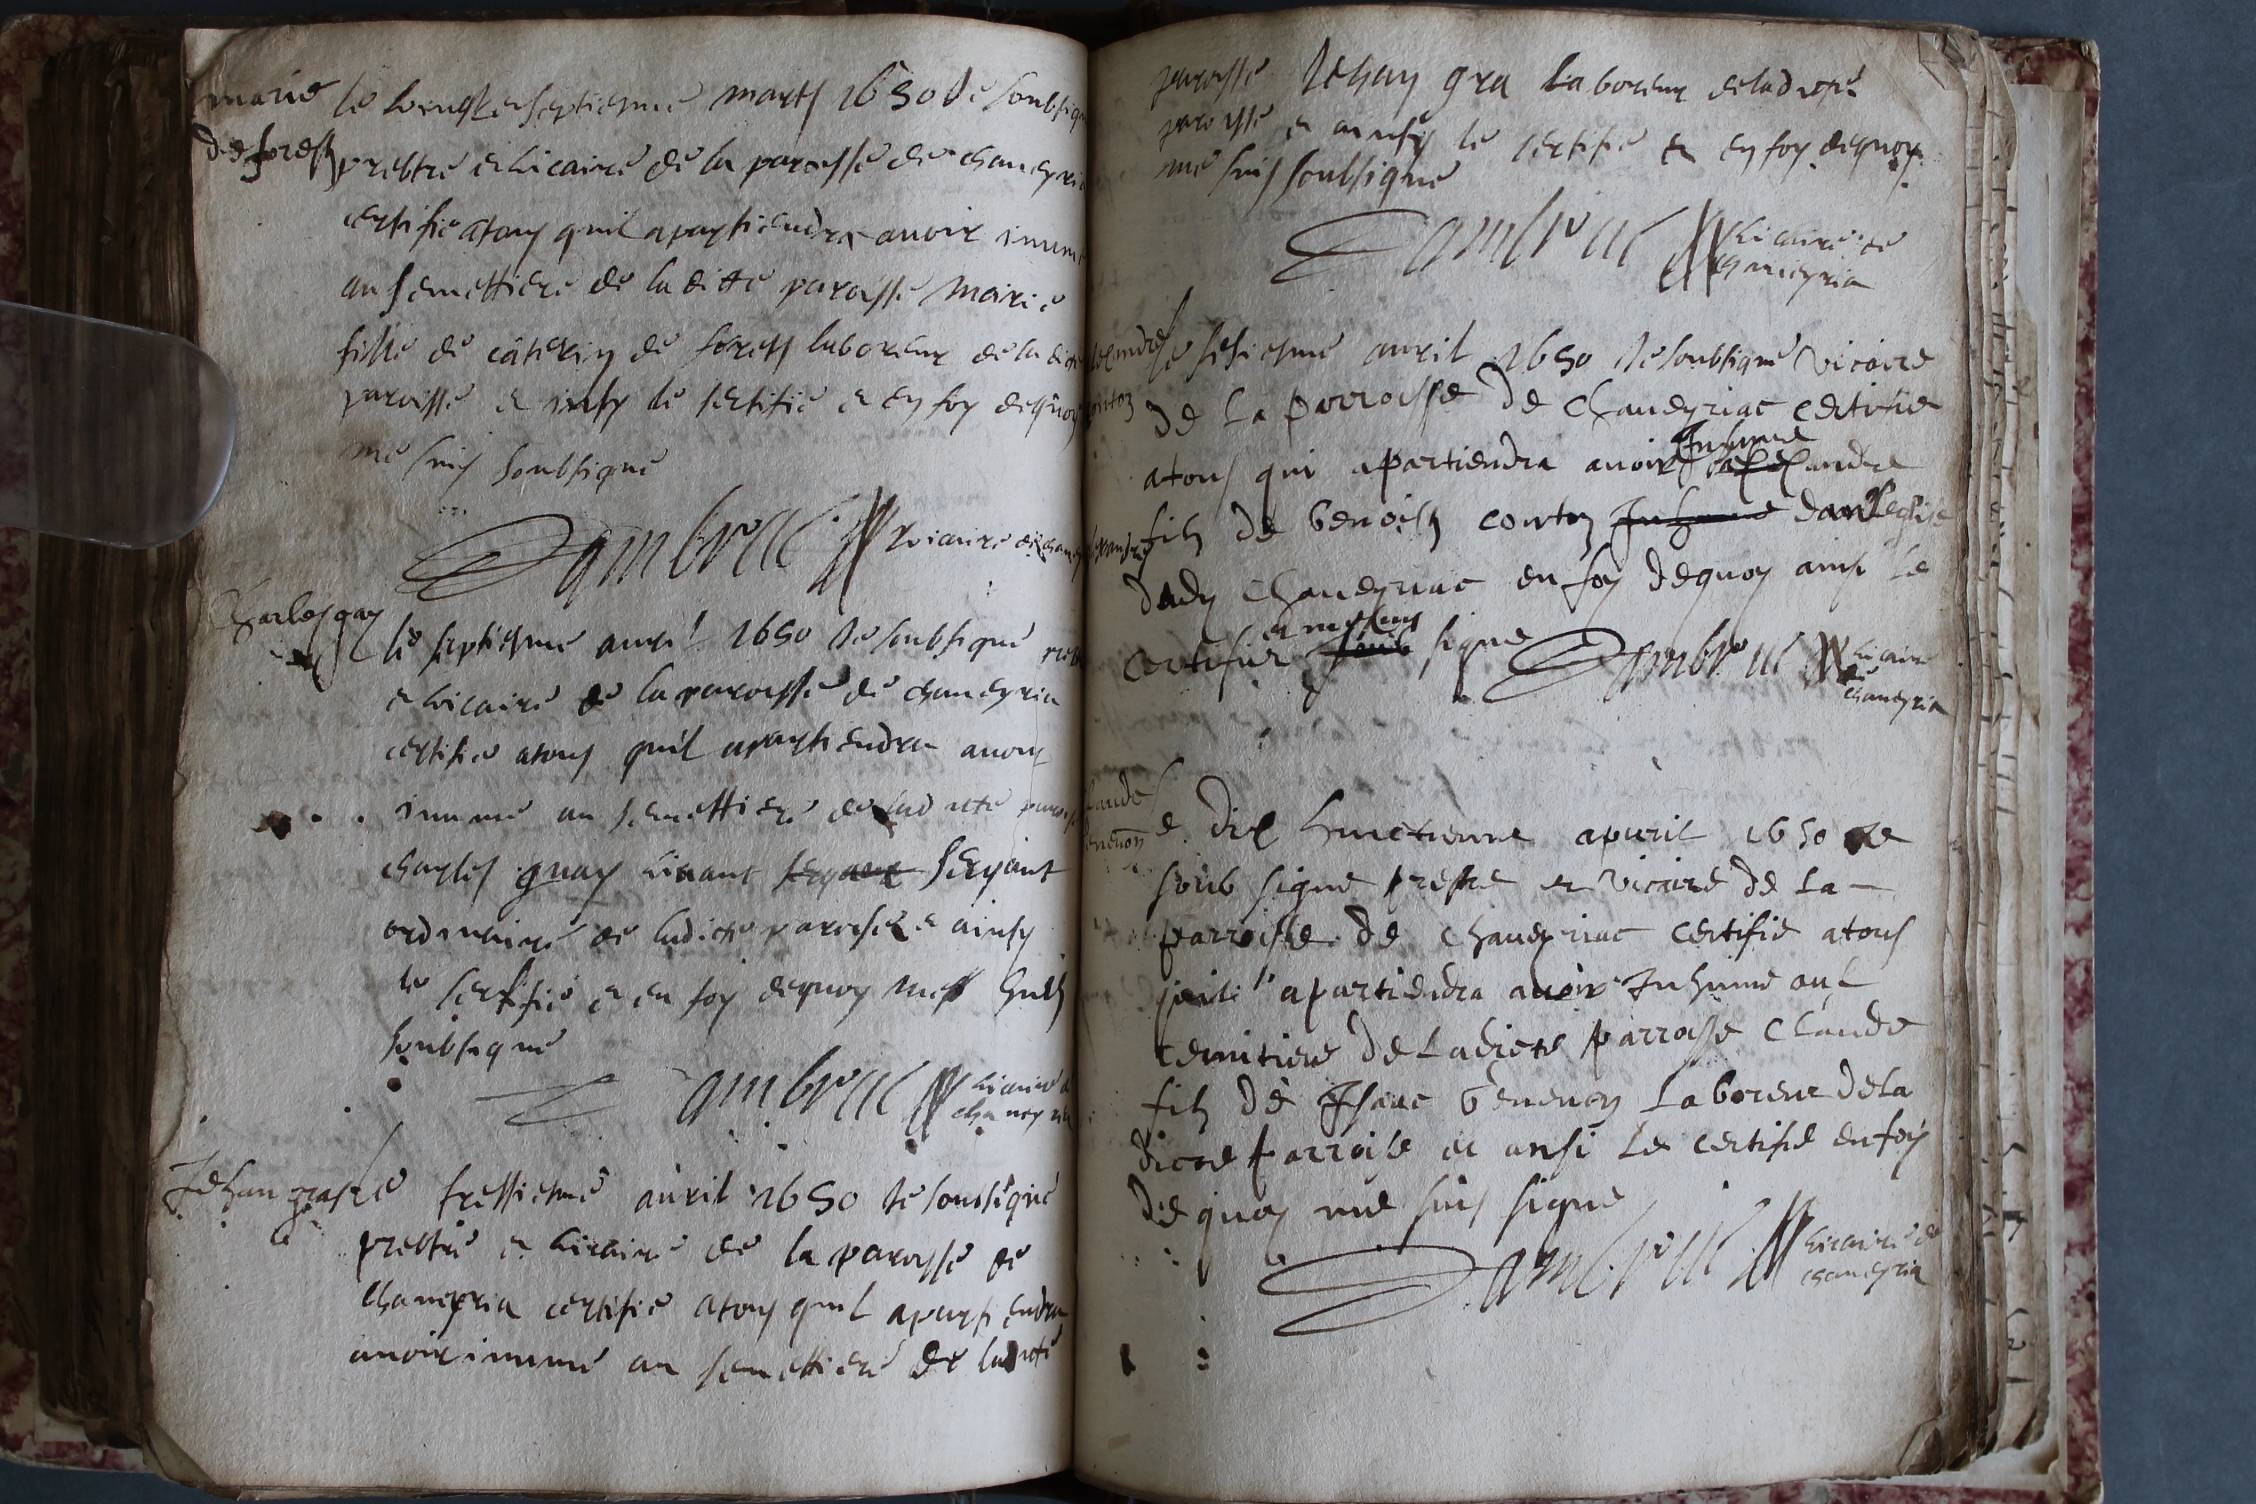 marie
de forest
le vingt en septiesme marts 1650 Je soubsigne
prebtre et vicaire de la paroisse de chaneyria
certifie atous quil apartiendra avoir inumé
au semettiere de la ditte paroisse marie
fille de caterin de forest laboreur de la dicte
paroisse et insy le sertifie et en foy dequoy
me suis soubsigné
Dambrun vicaire de chaneyria
Charles gay
le septiesme avril 1650 Je soubsigné
et vicaire de la paroisse de chaneyria
certifie atous quil apartiendra avoir
inumé au semettiere de ladicte paroisse
charles guay vivant servant
ordinaire de ladicte paroisse et ainsy
le sertifie et en foy dequoy me suis
soubsigné
Dambrun vicaire de
chaneyria
Jehan gra
le tressiesme avril 1650 Je soubsigné
prebtre et vicaire de la paroisse de
chaneyria certifie atous quil apartiendra
avoir inumé au semettiere de ladicte
paroisse Jehan gra laboreur de ladicte
paroisse et ainsy le sertifie et en foy dequoy
me suis soubsigné
Dambrun vicaire de
chaneyria
le sesiesme avril 1650 Je soubsigné vicaire
de la parroisse de Chaneyriac certifie
atous qui apartiendra avoir Inhume alexandre
filz de Benoist conton Inhume dans leglise
dudy Chaneyriac en foy dequoy ainsi le
certifie et me suis signe
Dambrun vicaire
de
chaneyria
Claude
Benenon
Le dix huictienne apvril 1650 Je
soub signe prestre et vicaire de la
parroisse de Chaneyriac certifie atous
quil apartiendra avoir Inhume au
cemitiere de Ladicte parroisse Claude
filz de Isaac Benenon Laboreur de la
dicte parroise et ansi Le certifie en foy
de quoy me suis signe
Dambrun vicaire de
chaneyria